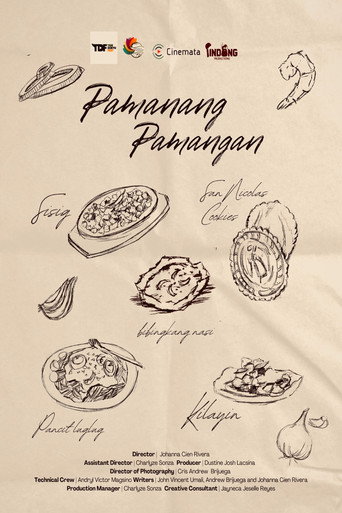 TDF
Cinemata
PINDÓNG
Pamanang
Pamangan
Sisig
San Nicolas
Cookies
bibingkang nasi
Pancit luglug
Kilayin
Director | Johanna Cien Rivera
Assistant Director | Charlyze Sonza Producer | Dustine Josh Lacsina
Director of Photography | Cris Andrew Brijuega
Technical Crew | Andryl Victor Magsino Writers | John Vincent Umali, Andrew Brijuega and Johanna Cien Rivera
Production Manager | Charlyze Sonza Creative Consultant | Jayneca Jeselle Reyes